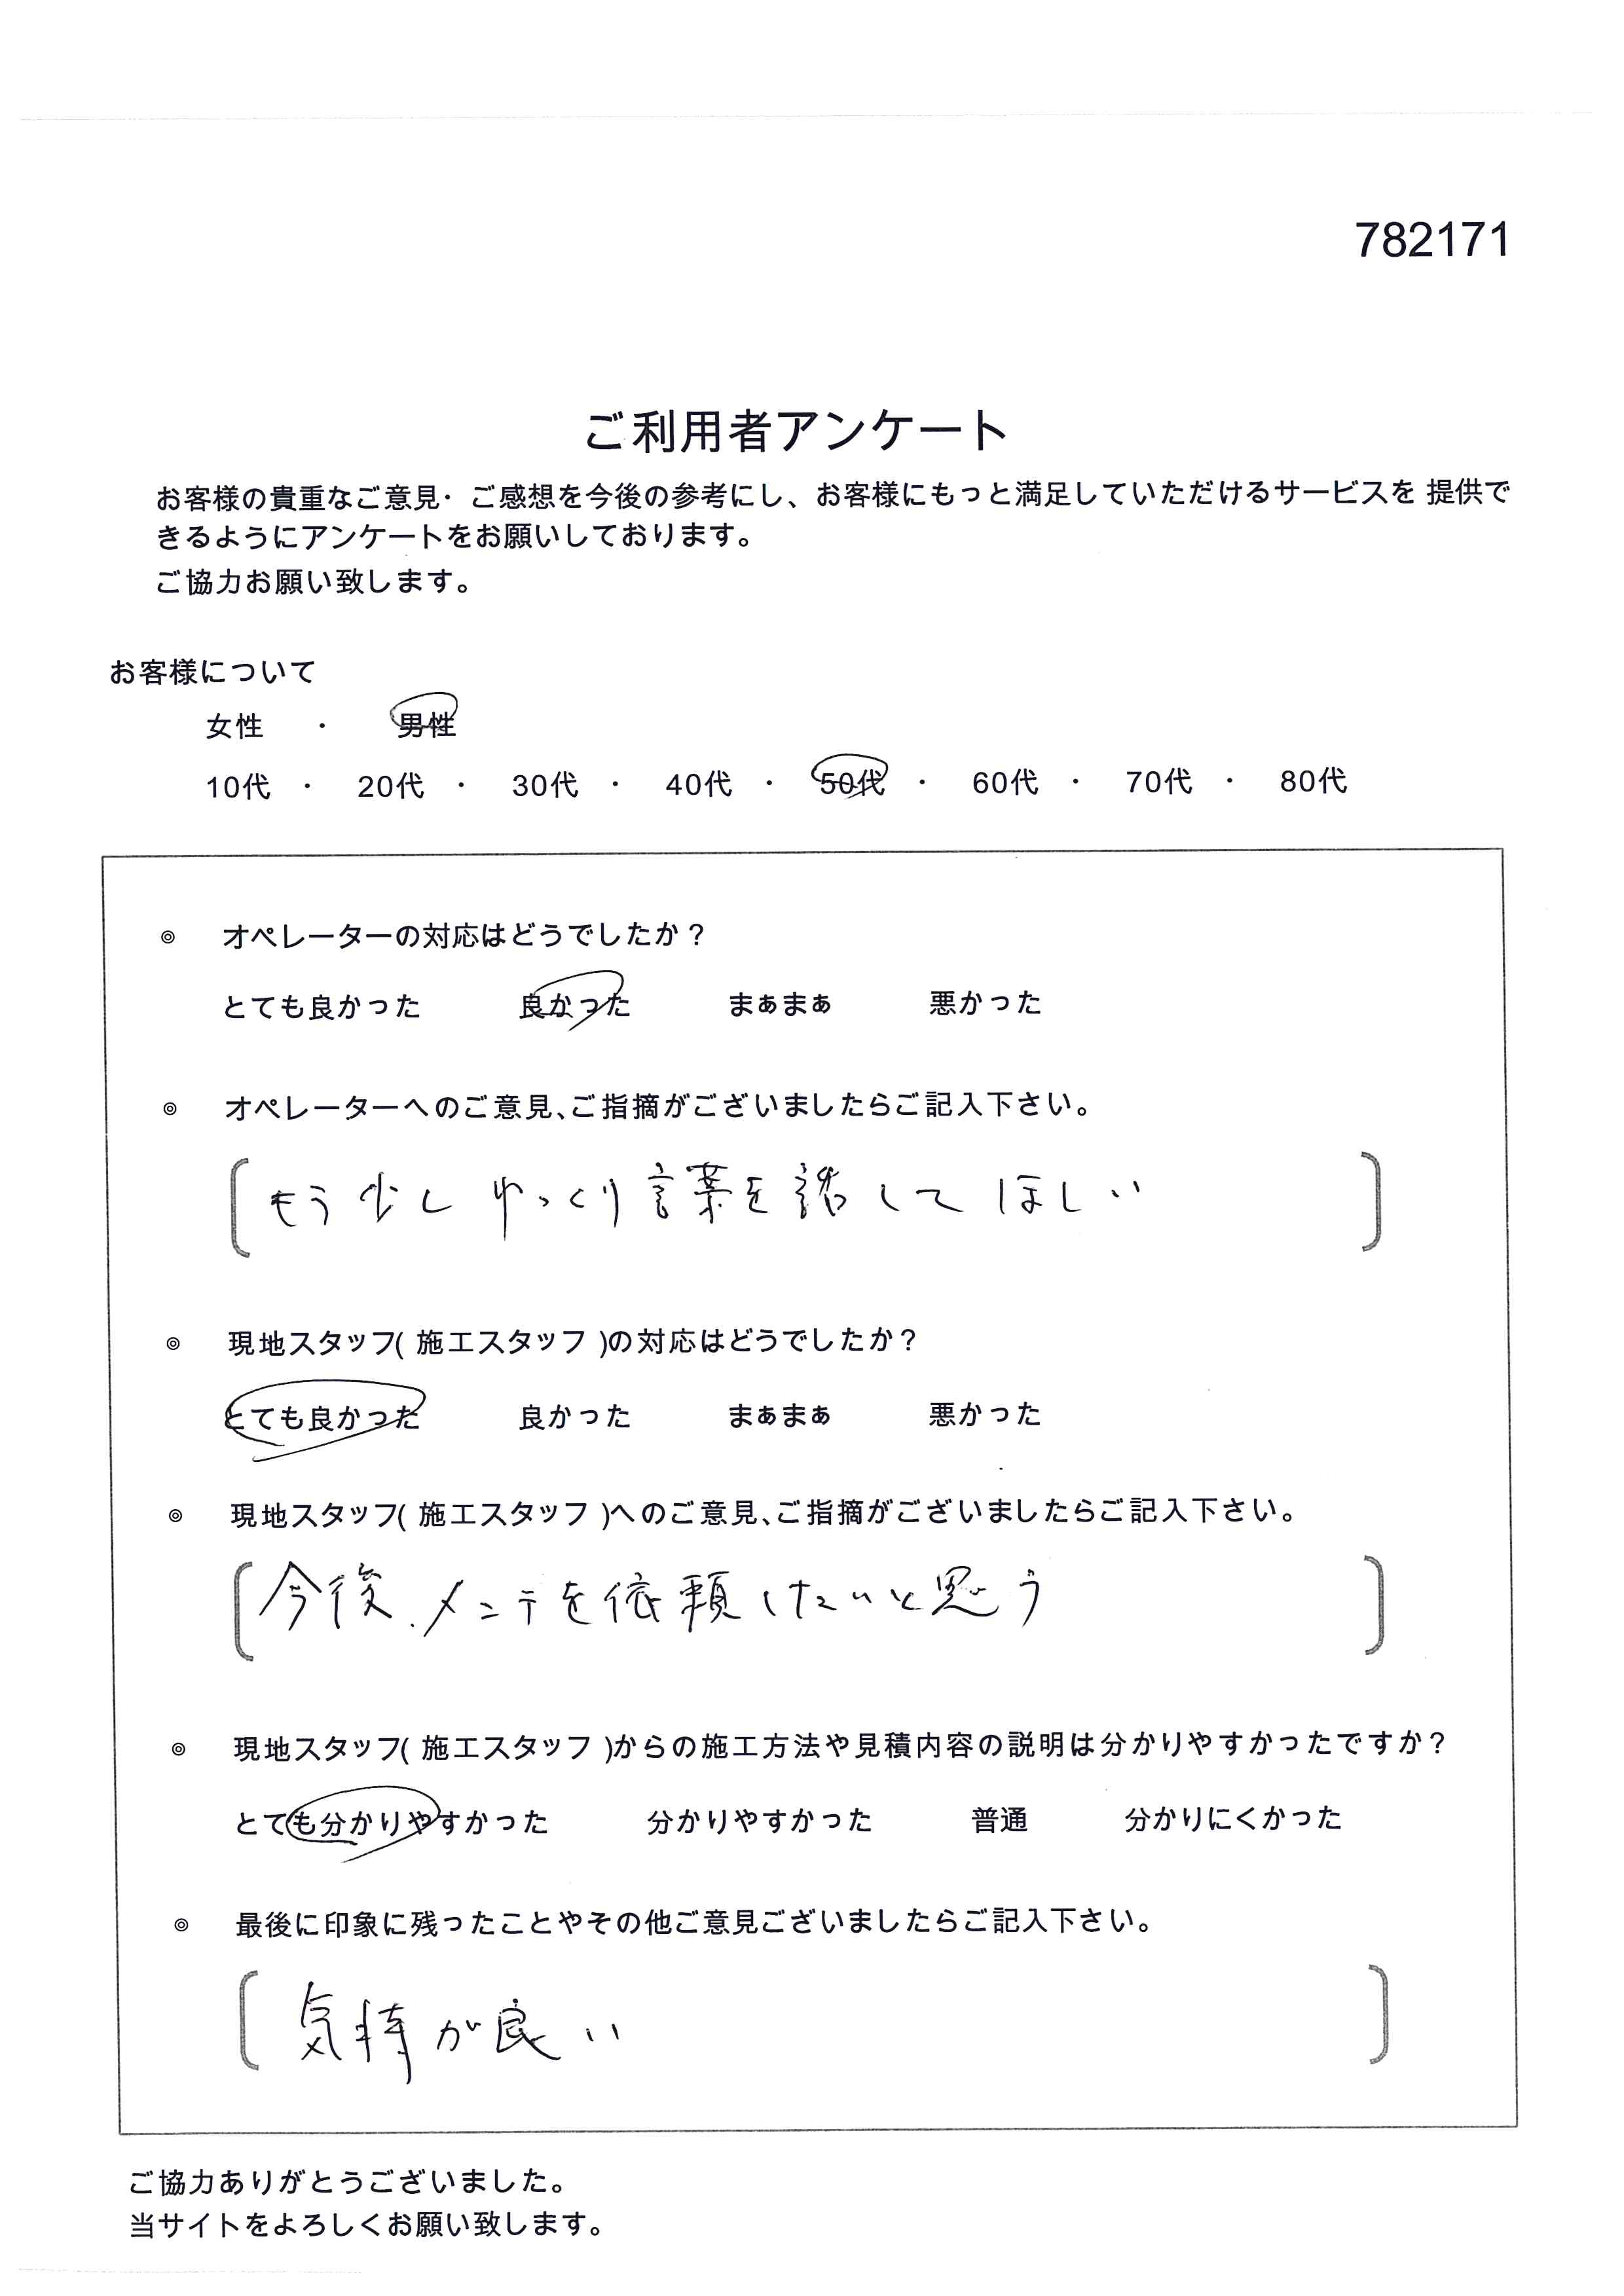 782171
ご利用者アンケート
お客様の貴重なご意見・ご感想を今後の参考にし、お客様にもっと満足していただけるサービスを 提供で
きるようにアンケートをお願いしております。
ご協力お願い致します。
お客様について
女性 ・ 男性
10代 ・ 20代 ・ 30代 ・ 40代 ・ 50代 ・ 60代 ・ 70代 ・ 80代
◎ オペレーターの対応はどうでしたか？
とても良かった 良かった まぁまぁ 悪かった
◎ オペレーターへのご意見、ご指摘がございましたらご記入下さい。
もう少しゆっくり言葉を話してほしい
◎ 現地スタッフ( 施工スタッフ )の対応はどうでしたか？
とても良かった 良かった まぁまぁ 悪かった
◎ 現地スタッフ( 施工スタッフ )へのご意見、ご指摘がございましたらご記入下さい。
今後、メンテを依頼したいと思う
◎ 現地スタッフ( 施工スタッフ )からの施工方法や見積内容の説明は分かりやすかったですか？
とても分かりやすかった 分かりやすかった 普通 分かりにくかった
◎ 最後に印象に残ったことやその他ご意見ございましたらご記入下さい。
気持が良い
ご協力ありがとうございました。
当サイトをよろしくお願い致します。